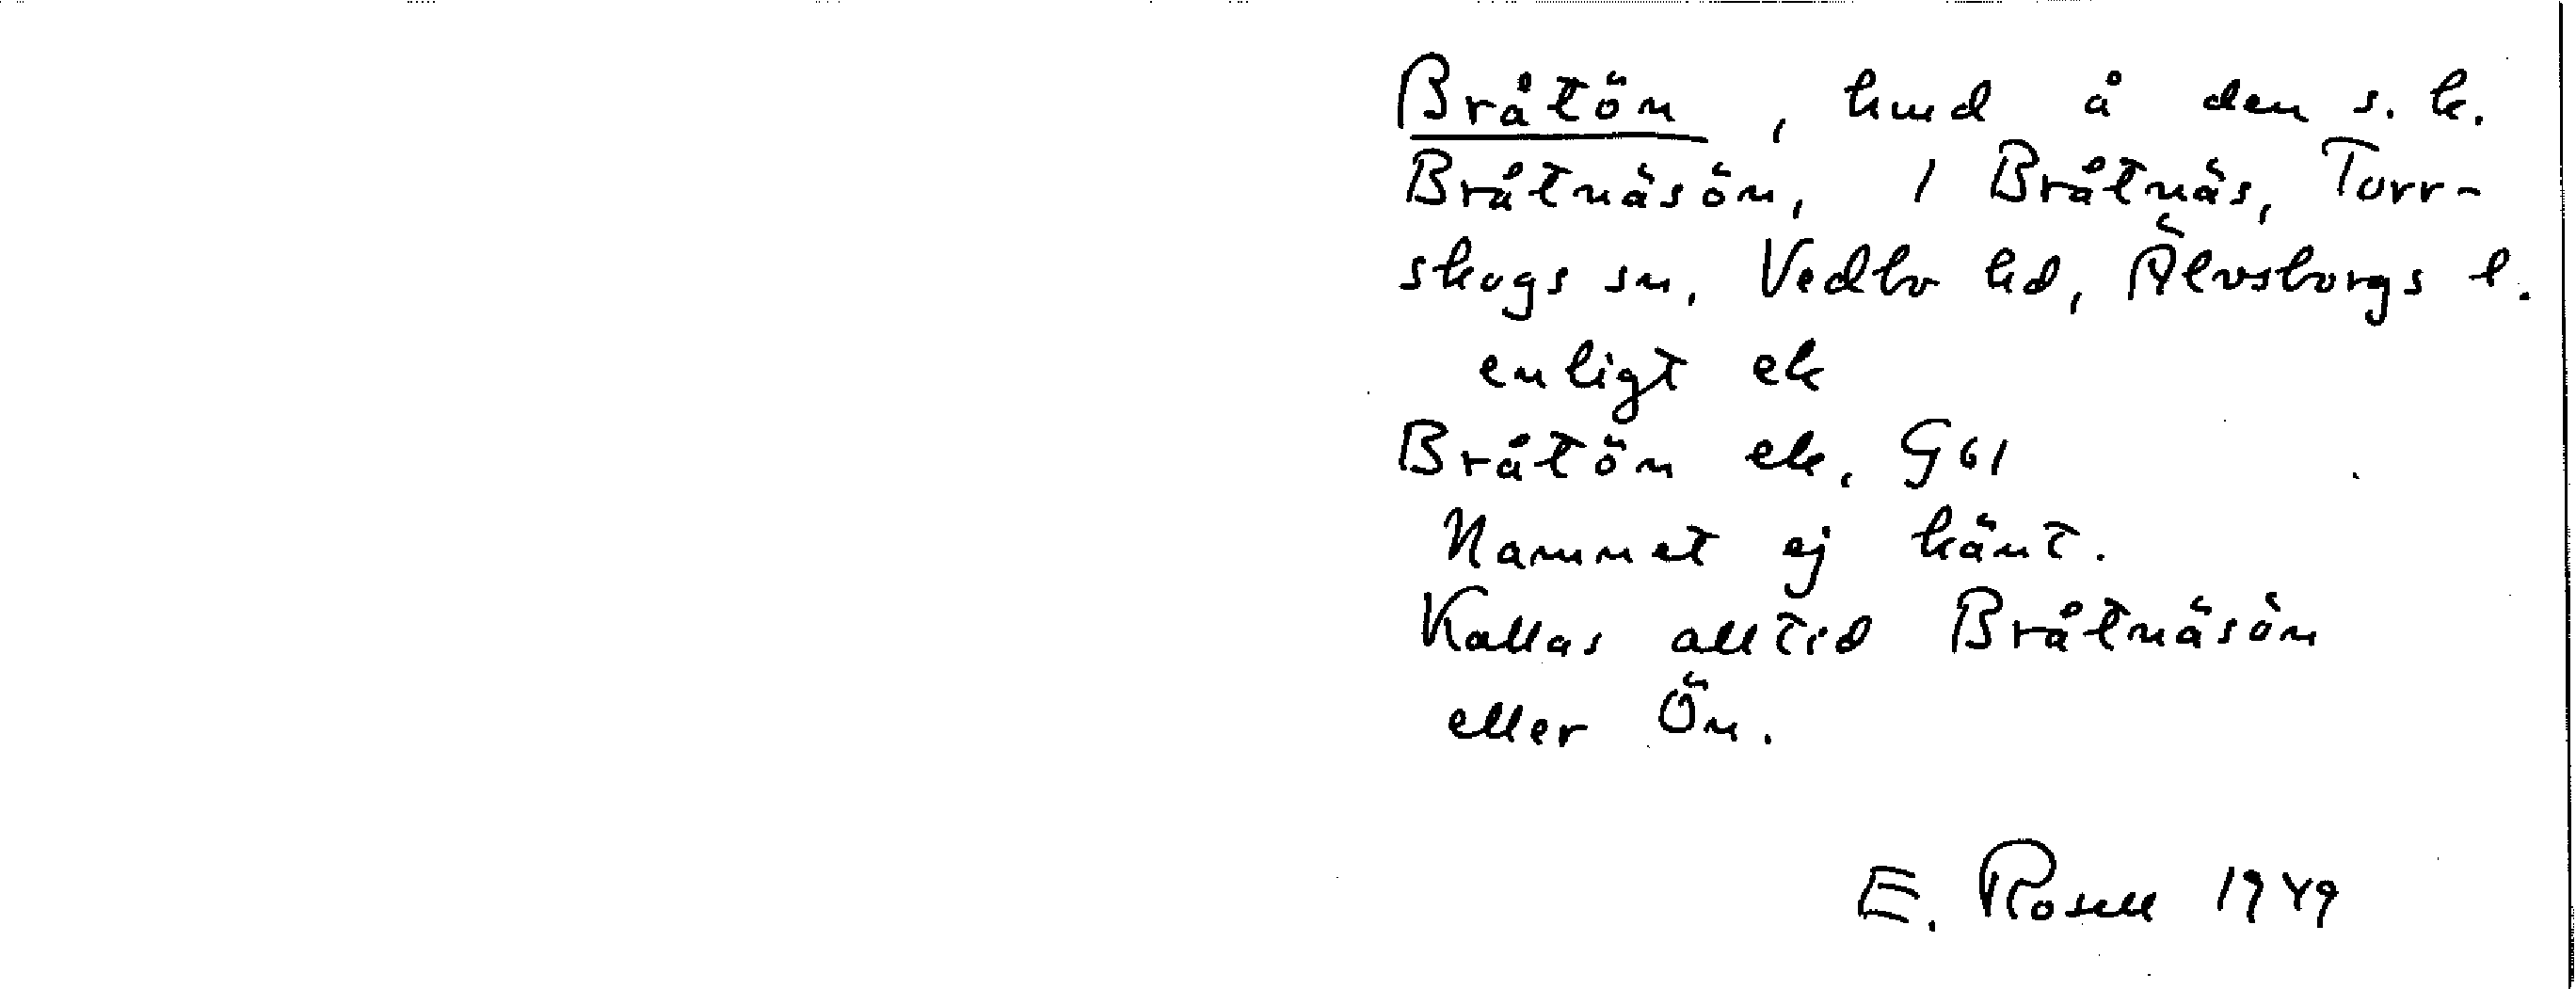 Bråtön, hmd å den s.k.
Bråtnäsön, 1 Bråtnäs, Torr-
skogs sn, Vedbo hd, Älvsborgs l.
enligt ek
Bråtön ek. G61
Namnet ej känt.
Kallas alltid Bråtnäsön
eller Ön.
E. Rosell 1949